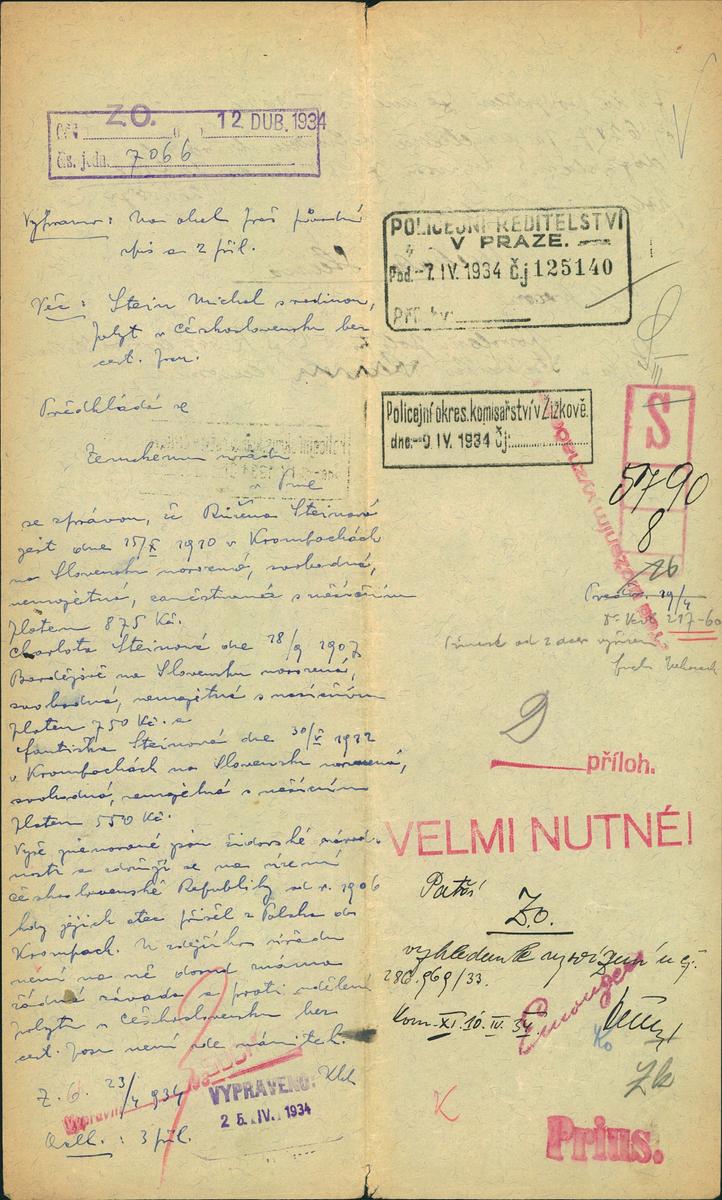 Z.O. 12 DUB. 1934
čís. jedn. 7066
Vypraveno: Na obal praž. původní
spis a 2 příl.
Věc: Stein Michal s rodinou,
pobyt v Československu bez
cest. pasu.
Předkládá se
Zemskému úřadu
v Praze
se zprávou, že Růžena Steinová
jest dne 15/X 1910 v Krompachách
na Slovensku narozená, svobodná,
nemajetná, zaměstnaná s měsíčním
platem 875 Kč.
Charlota Steinová dne 28/9 1907
Bardějově na Slovensku narozená,
svobodná, nemajetná s měsíčním
platem 750 Kč. a
Františka Steinová dne 30/V 1912
v Krompachách na Slovensku narozená,
svobodná, nemajetná s měsíčním
platem 550 Kč.
Výše jmenované jsou židovské národ-
nosti a zdržují se na území
Československé Republiky od r. 1906
kdy jejich otec přišel z Polska do
Krompach. U zdejšího úřadu
není na ně dosud známa
žádná závada a proti udělení
pobytu v Československu bez
cest. pasu není zde námitek.
Z. O. 23/4 934
VYPRAVENO:
25. IV. 1934
Odd. : 3 příl.
POLICEJNÍ ŘEDITELSTVÍ
V PRAZE.
Pod. -7. IV. 1934 Č.j 125140
Příl
Policejní okres. komisařství v Žižkově.
dne: -9. IV. 1934 čj:
S
5790
8
26
29/4
217-60
2
příloh.
VELMI NUTNÉ!
Patří
Z.o.
286.969/33.
Kom. XI. 10. IV. 34
Zk
K
Prius.